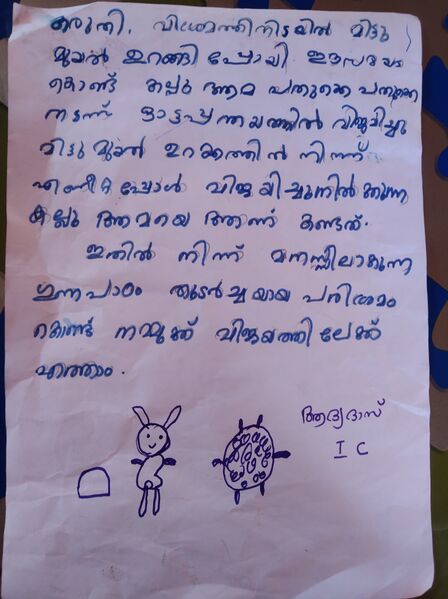 കരുതി. വിശ്രമത്തിനിടയിൽ മിട്ടു
മുയൽ ഉറങ്ങിപ്പോയി ഈസമയം
കൊണ്ട് കപ്പു ആമ പതുക്കെ പതുക്കെ
നടന്ന് ഓട്ടപ്പന്തയത്തിൽ വിജയിച്ചു
മിട്ടു മുയൽ ഉറക്കത്തിൽ നിന്ന്
എണീറ്റപ്പോൾ വിജയിച്ചുനിൽക്കുന്ന
കപ്പു ആമയെ ആണ് കണ്ടത്.
ഇതിൽ നിന്ന് മനസ്സിലാകുന്ന
ഗുണപാഠം തുടർച്ചയായ പരിശ്രമം
കൊണ്ട് നമുക്ക് വിജയത്തിലേക്ക്
എത്താം.
ആദ്യദാസ്
I C